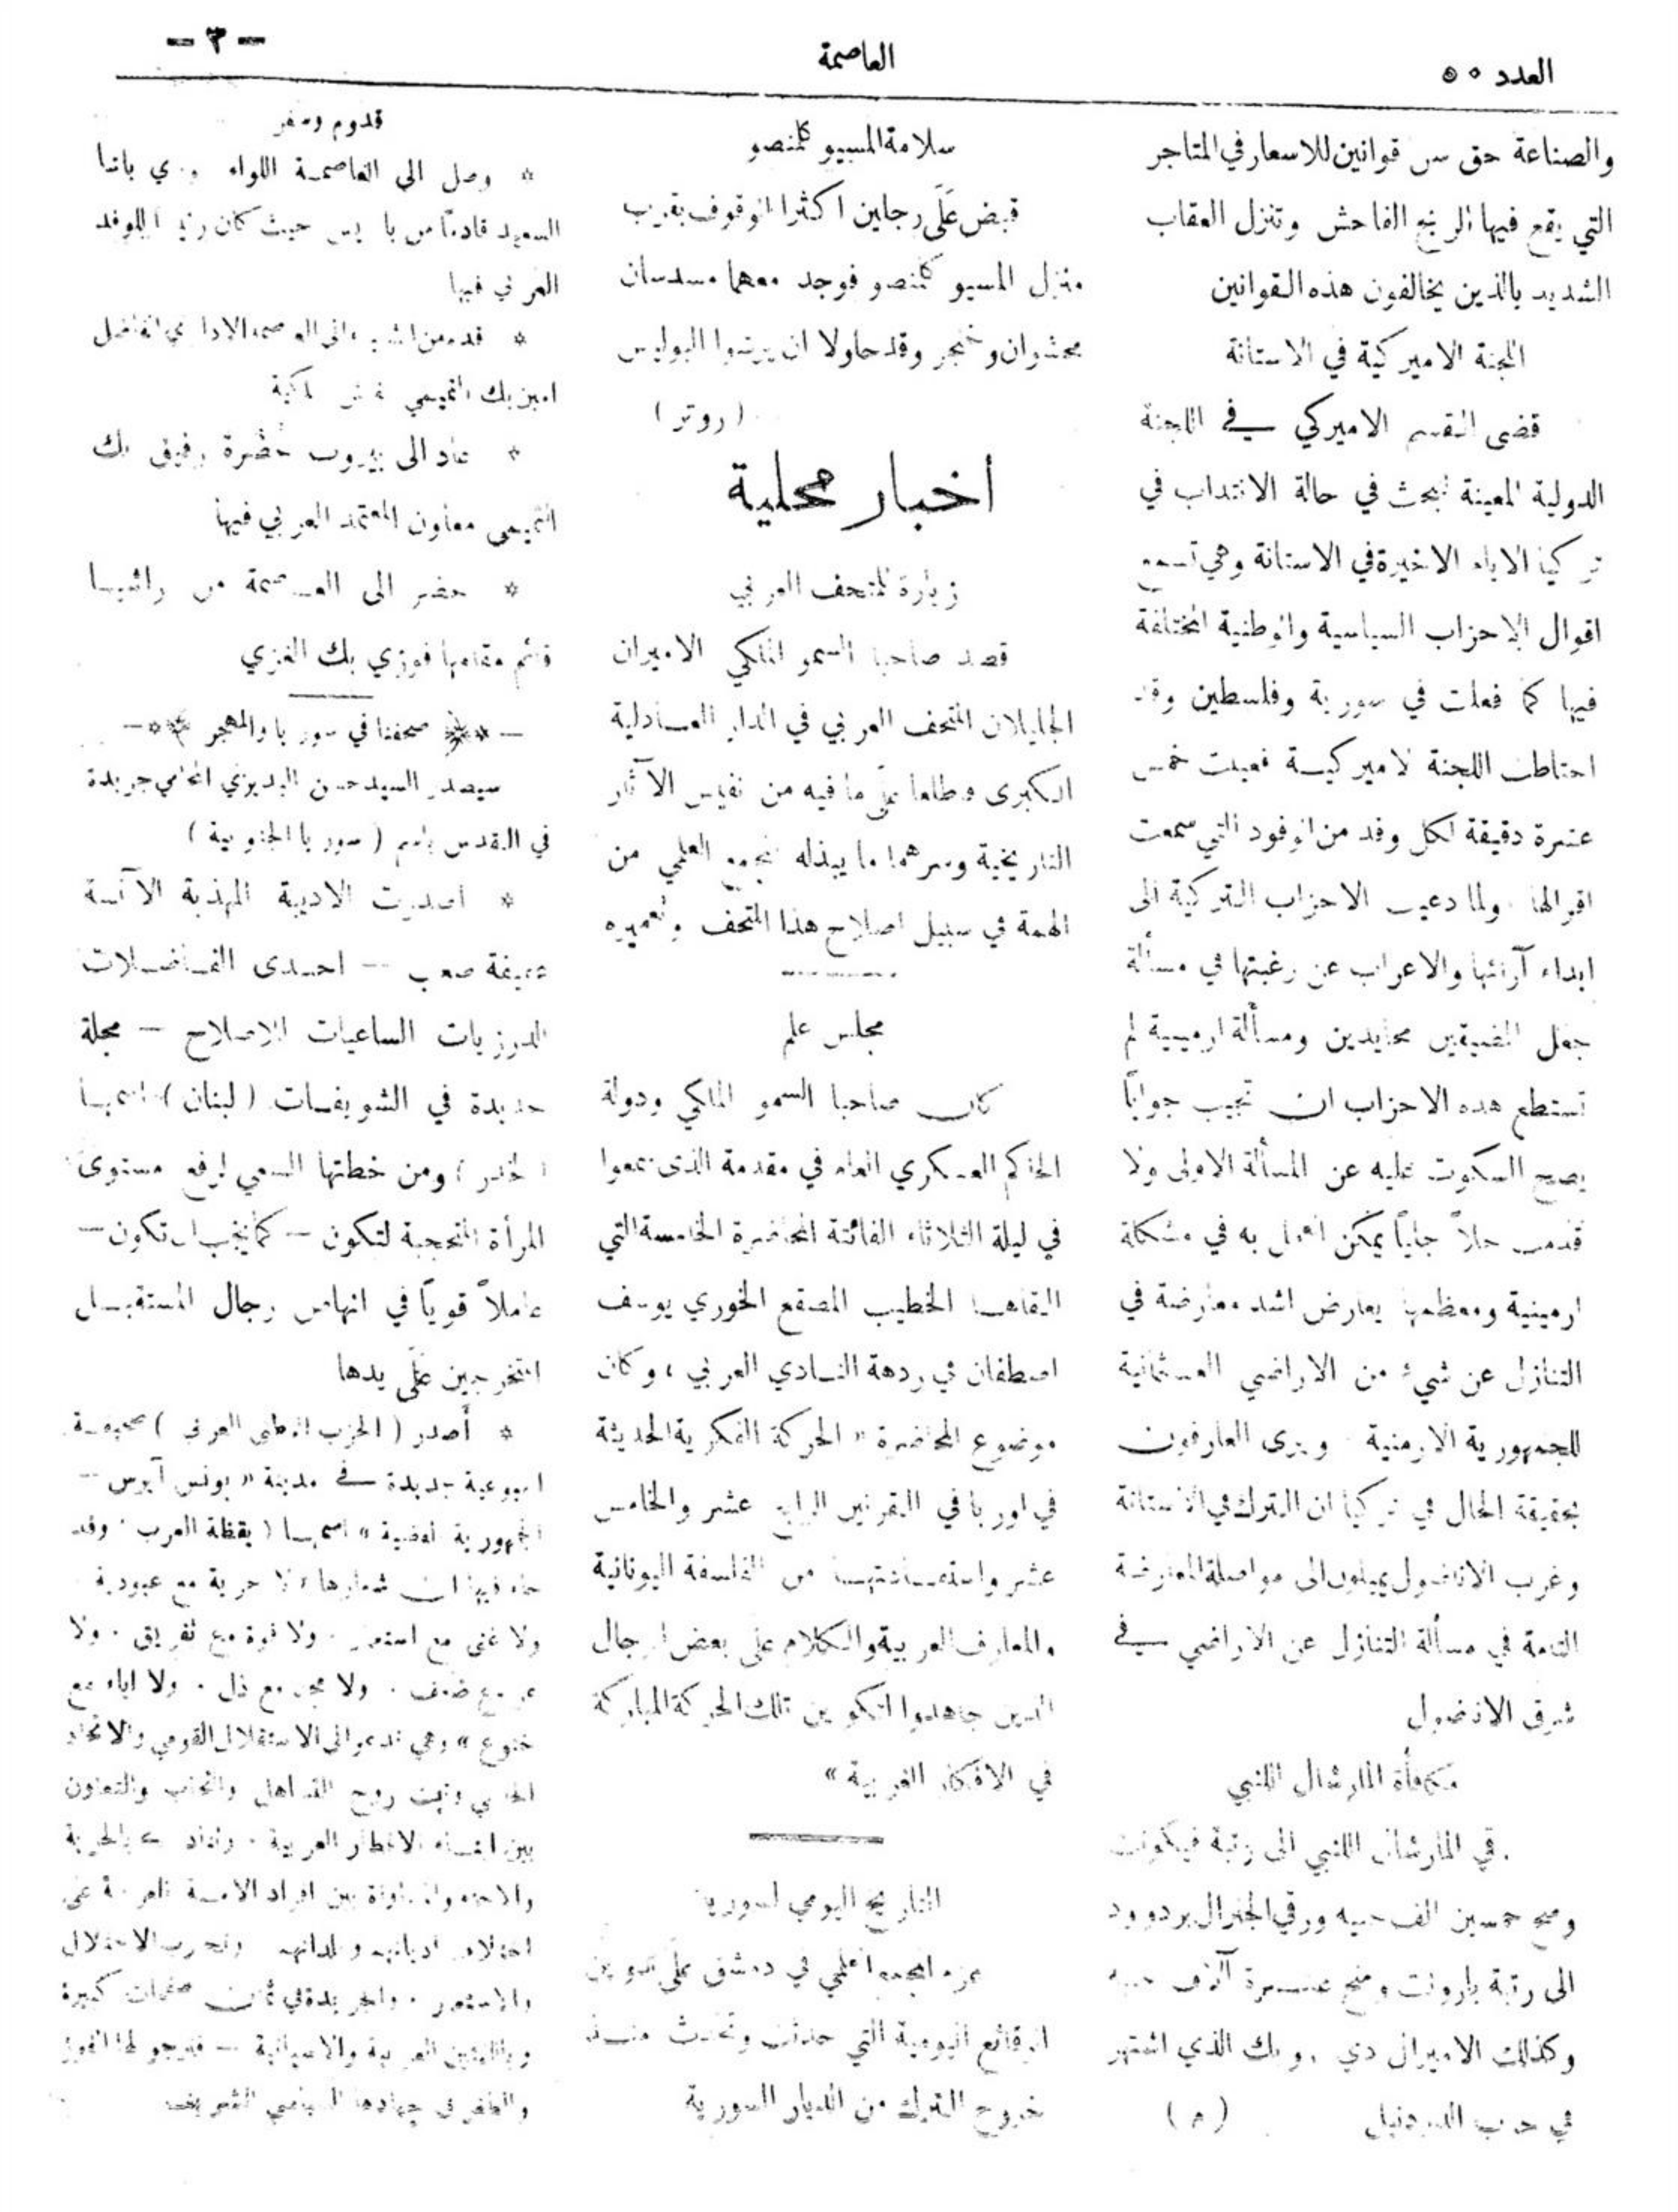 العدد ٥٠
العاصمة
- ٣ -
والصناعة حق سن قوانين للاسعار في المتاجر
التي يقع فيها الربح الفاحش وتنزل العقاب
الشديد بالذين يخالفون هذه القوانين
اللجنة الاميركية في الاستانة
قضى القسم الاميركي في اللجنة
الدولية المعينة لبحث في حالة الانتداب في
تركيا الايام الاخيرة في الاستانة وهي تسمع
اقوال الاحزاب السياسية والوطنية المختلفة
فيها كما فعلت في سورية وفلسطين وقد
احتاطت اللجنة الاميركية فعينت خمس
عشرة دقيقة لكل وفد من الوفود التي سمعت
اقوالها ولما دعيت الاحزاب التركية الى
ابداء آرائها والاعراب عن رغبتها في مسألة
جعل المضيقين محايدين ومسألة ارمينية لم
تستطع هذه الاحزاب ان تجيب جواباً
يصح السكوت عليه عن المسألة الاولى ولا
قدمت حلاً جلياً يمكن العمل به في مشكلة
ارمينية ومعظمها يعارض اشد معارضة في
التنازل عن شيء من الاراضي العثمانية
للجمهورية الارمنية ويرى العارفون
بحقيقة الحال في تركيا ان الترك في الاستانة
وغرب الاناضول يميلون الى مواصلة المعارضة
التامة في مسألة التنازل عن الاراضي في
شرقي الاناضول
مكافأة المارشال اللنبي
رقي المارشال اللنبي الى رتبة فيكونت
ومنح خمسين الف جنيه ورقي الجنرال بردوود
الى رتبة بارونت ومنح عشرة آلاف جنيه
وكذلك الاميرال دي روبك الذي اشتهر
في حرب الدردنيل (م)
سلامة المسيو كلمنصو
قبض على رجلين اكثرا الوقوف بقرب
منزل المسيو كلمنصو فوجد معهما مسدسان
محشوان وخنجر وقد حاولا ان يرشوا البوليس
(روتر)
أخبار محلية
زيارة المتحف العربي
قصد صاحبا السمو الملكي الاميران
الجليلان المتحف العربي في الدار العادلية
الكبرى وطلعا على ما فيه من نفيس الآثار
التاريخية وسرهما ما يبذله المجمع العلمي من
الهمة في سبيل اصلاح هذا المتحف وتعميره
مجلس علم
كان صاحبا السمو الملكي ودولة
الحاكم العسكري العام في مقدمة الذين سمعوا
في ليلة الثلاثاء الفائتة المحاضرة الخامسة التي
القاها الخطيب المصقع الخوري يوسف
اصطفان في ردهة النادي العربي ، وكان
موضوع المحاضرة « الحركة الفكرية الحديثة
في اوربا في القرنين الرابع عشر والخامس
عشر واستمدادتها من الفلسفة اليونانية
والمعارف العربية والكلام على بعض الرجال
الذين جاهدوا لتكوين تلك الحركة المباركة
في الافكار الغربية »
التاريخ اليومي لسوريا
عزم المجمع العلمي في دمشق على تدوين
الوقائع اليومية التي حدثت وتحدث منذ
خروج الترك من الديار السورية
قدوم وسفر
* وصل الى العاصمة اللواء نوري باشا
السعيد قادماً من باريس حيث كان رئيساً للوفد
العربي فيها
* قدم من الى العاصمة الاداري الفاضل
امين بك التميمي
* عاد الى بيروت حضرة رفيق بك
التميمي معاون المعتمد العربي فيها
* حضر الى العاصمة من راشيا
قائم مقامها فوزي بك الغزي
صحفنا في سوريا والمهجر
سيصدر السيد حسن البديري المحامي جريدة
في القدس باسم ( سوريا الجنوبية )
* اصدرت الاديبة المهذبة الآنسة
عفيفة صعب - احدى الفاضلات
الدرزيات الساعيات للاصلاح - مجلة
جديدة في الشويفات (لبنان) اسمها
( الخدر ) ومن خطتها السعي لرفع مستوى
المرأة المحجبة لتكون - كما يجب ان تكون -
عاملاً قوياً في انهاض رجال المستقبل
المتخرجين على يدها
* أصدر ( الحزب الوطني العربي ) صحيفة
اسبوعية جديدة في مدينة « بونس آيرس -
الجمهورية الفضية » اسمها ( يقظة العرب ) وقد
جاء فيها ان شعارها « لا حرية مع عبودية
ولا غنى مع استعمار . ولا قوة مع تفريق . ولا
عز مع ضعف . ولا مجد مع ذل . ولا اباء مع
خنوع » وهي تدعو الى الاستقلال القومي والاتحاد
وتبث روح التساهل والتحاب والتعاون
بين ابناء الاقطار العربية . بالحرية
والمساواة بين افراد الامة العربية على
اختلاف اديانهم وبلدانهم وتحارب الاحتلال
والاستعمار . والجريدة في ثمان صفحات كبيرة
وباللغتين العربية والاسبانية - فنرجو لها الفوز
والظفر في جهادها السياسي الشريف